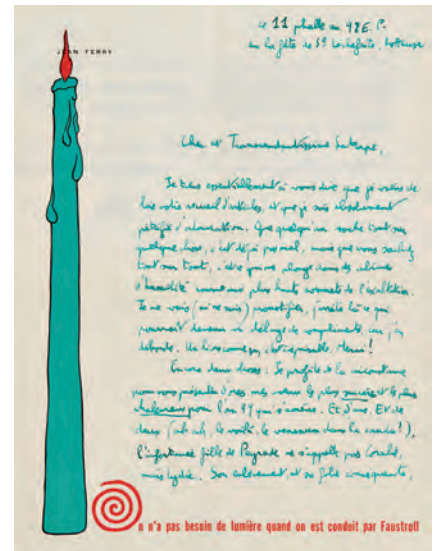 le 11 phalle an 98 E. P.
en la fête de St
JEAN FERRY
Cher et Transcendantissime Satrape,
Je tiens essentiellement à vous dire que je viens de
lire votre recueil d'articles, et que je suis absolument
pétrifié d'admiration. Que quelqu'un sache tout sur
quelque chose, c'est déjà pas mal, mais que vous sachiez
tout sur tout, c'est ce qui me plonge dans des abîmes
d'humilité comme aux plus hauts sommets de l'exaltation.
Je ne vois (ni ne suis) j'arrête là ce qui
pourrait devenir un déluge de compliments, car j'en
déborde. Un livre comme ça, c'est inépuisable. Merci !
Encore deux choses : Je profite de la circonstance
pour vous présenter d'ores mes vœux les plus sincères et les plus
chaleureux pour l'an 99 qui s'amène. Et d'une. Et de
deux (ah ah, le voilà, le venimeux dans la !),
l'infortunée fille de Peyrade ne s'appelle pas Coralie,
mais Lydie. Son enlèvement, et sa folie conséquente,
On n'a pas besoin de lumière quand on est conduit par Faustroll